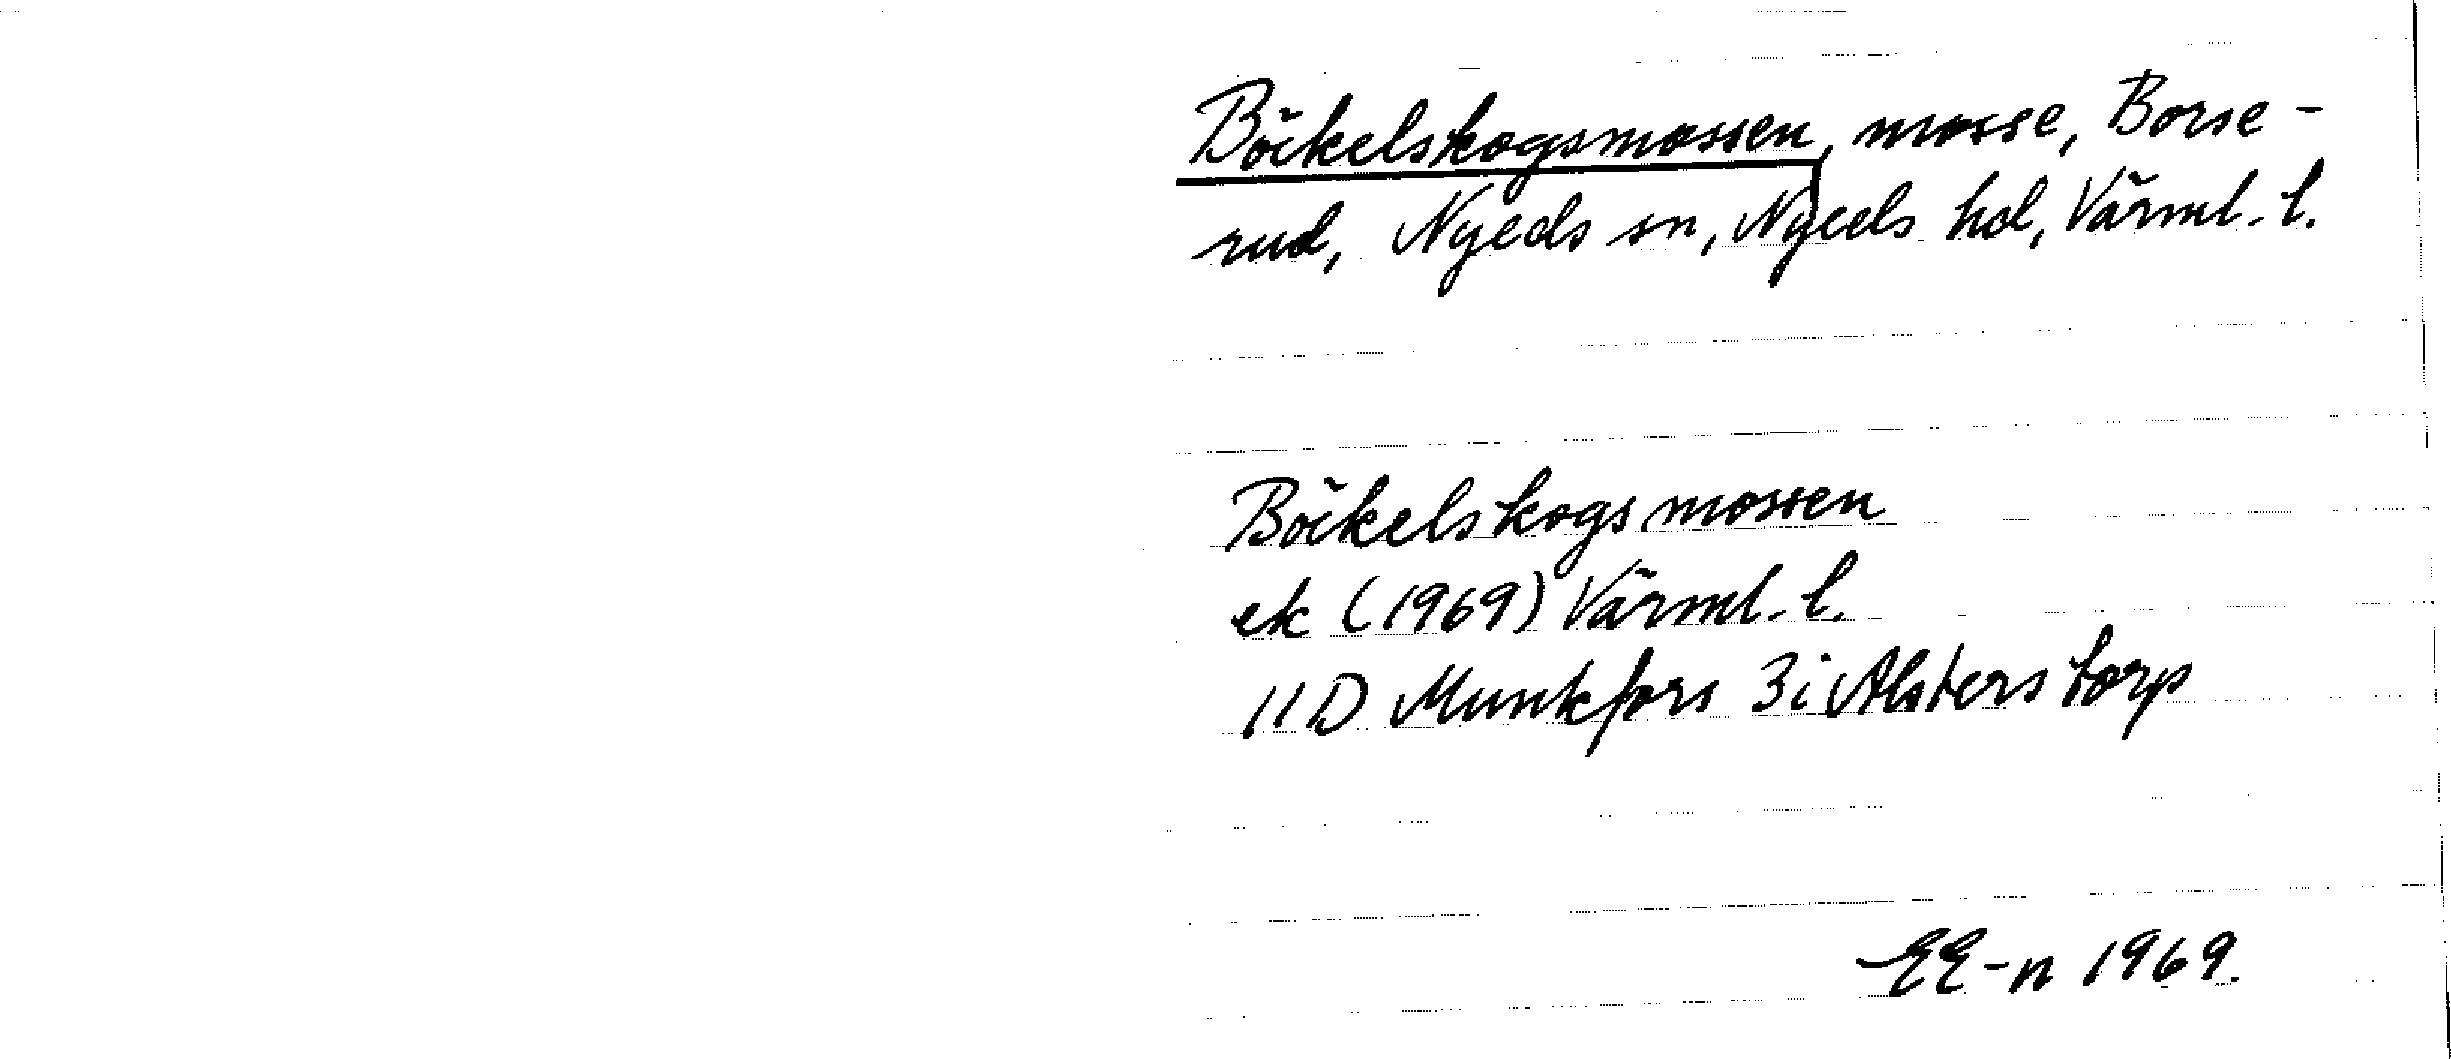 Böckelskogsmossen, mosse, Borse-
rud, Nyeds sn, Nyeds hd, Värml. l.
Böckelskogsmossen
ek (1969) Värml. l.
11D Munkfors 3i Alsters torp
EE-n 1969.